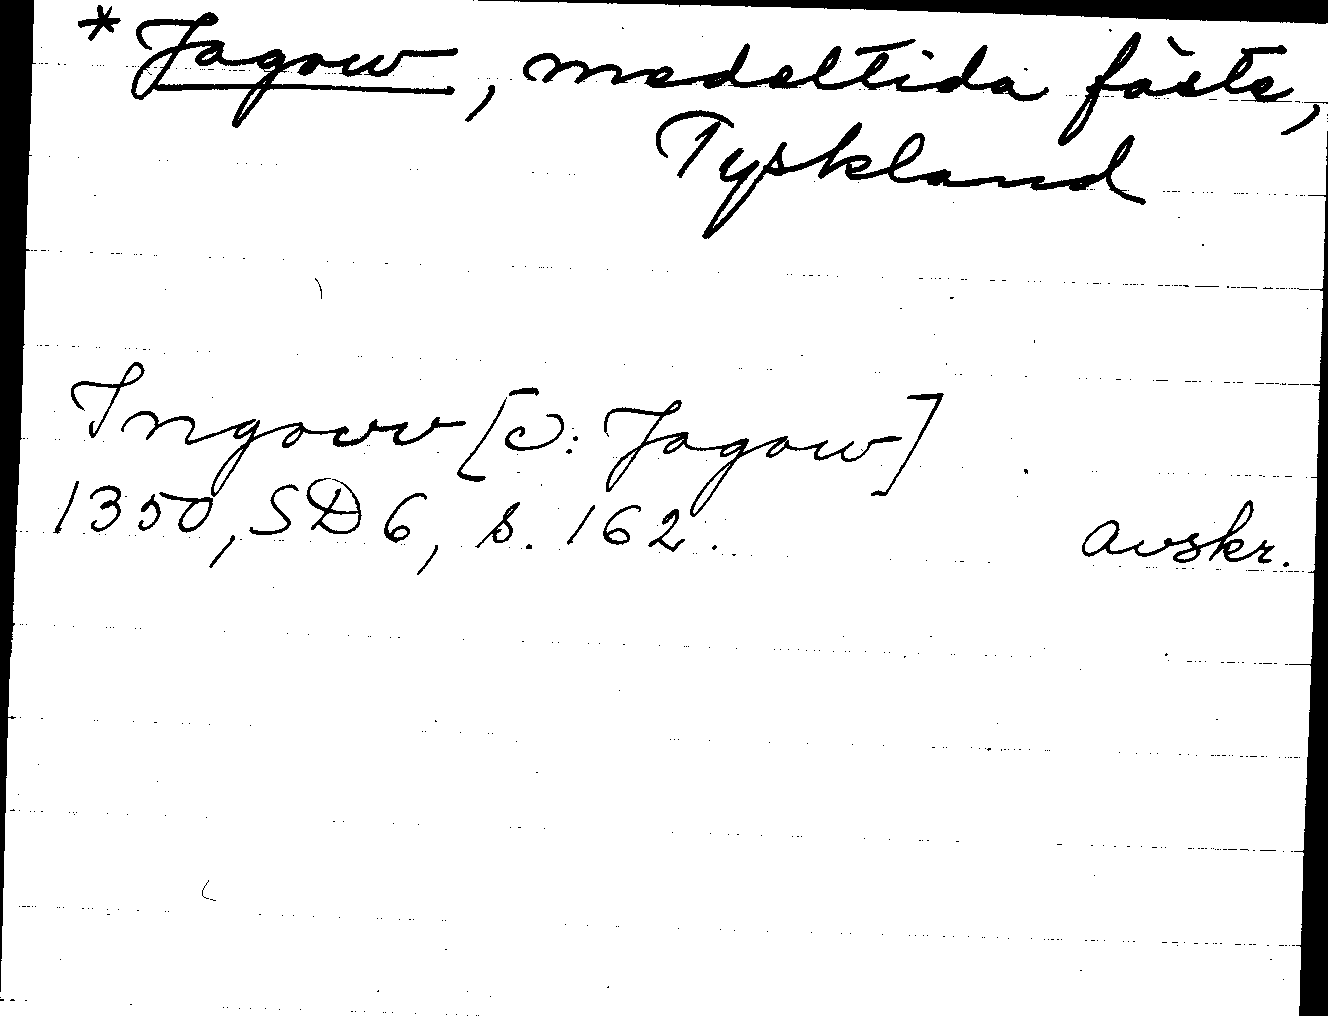 * Jagow, medeltida fäste,
Tyskland
Ingovv [ɔ: Jagow]
1350, SD 6, s. 162. avskr.